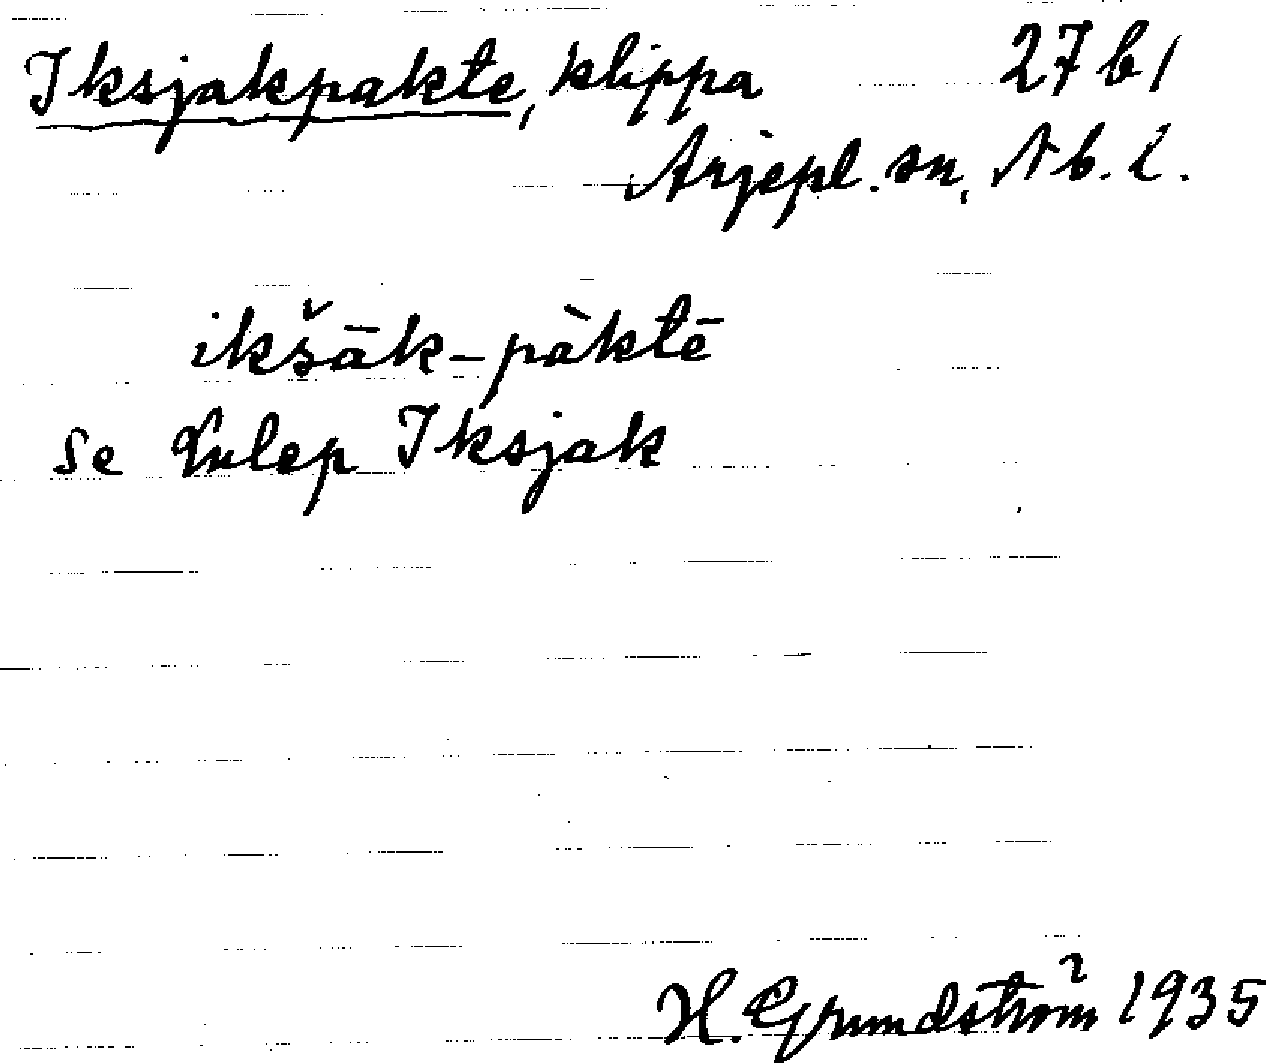 Iksjakpakte, klippa 27 b 1
Arjepl. sn, Nb. L.
ikšāk-pàktē
se Lulep Iksjak
H. Grundström 1935